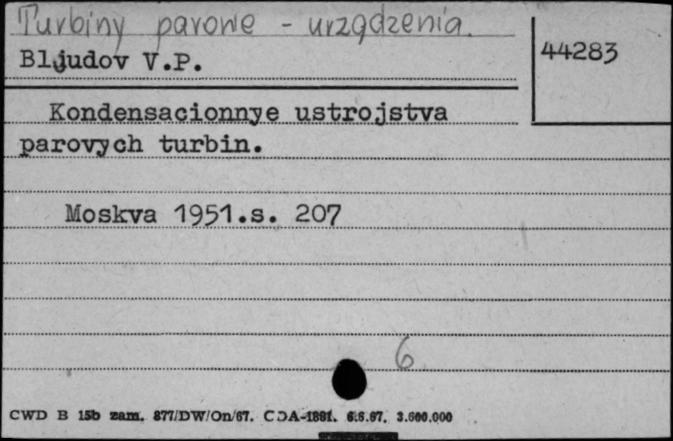 Turbiny parowe - urządzenia.
Bljudov V.P.
44283
Kondensacionnye ustrojstva
parovych turbin.
Moskva 1951.s. 207
6
CWD B 15b zam. 877/DW/On/67. CDA-1881. 6.6.67. 3.600.000